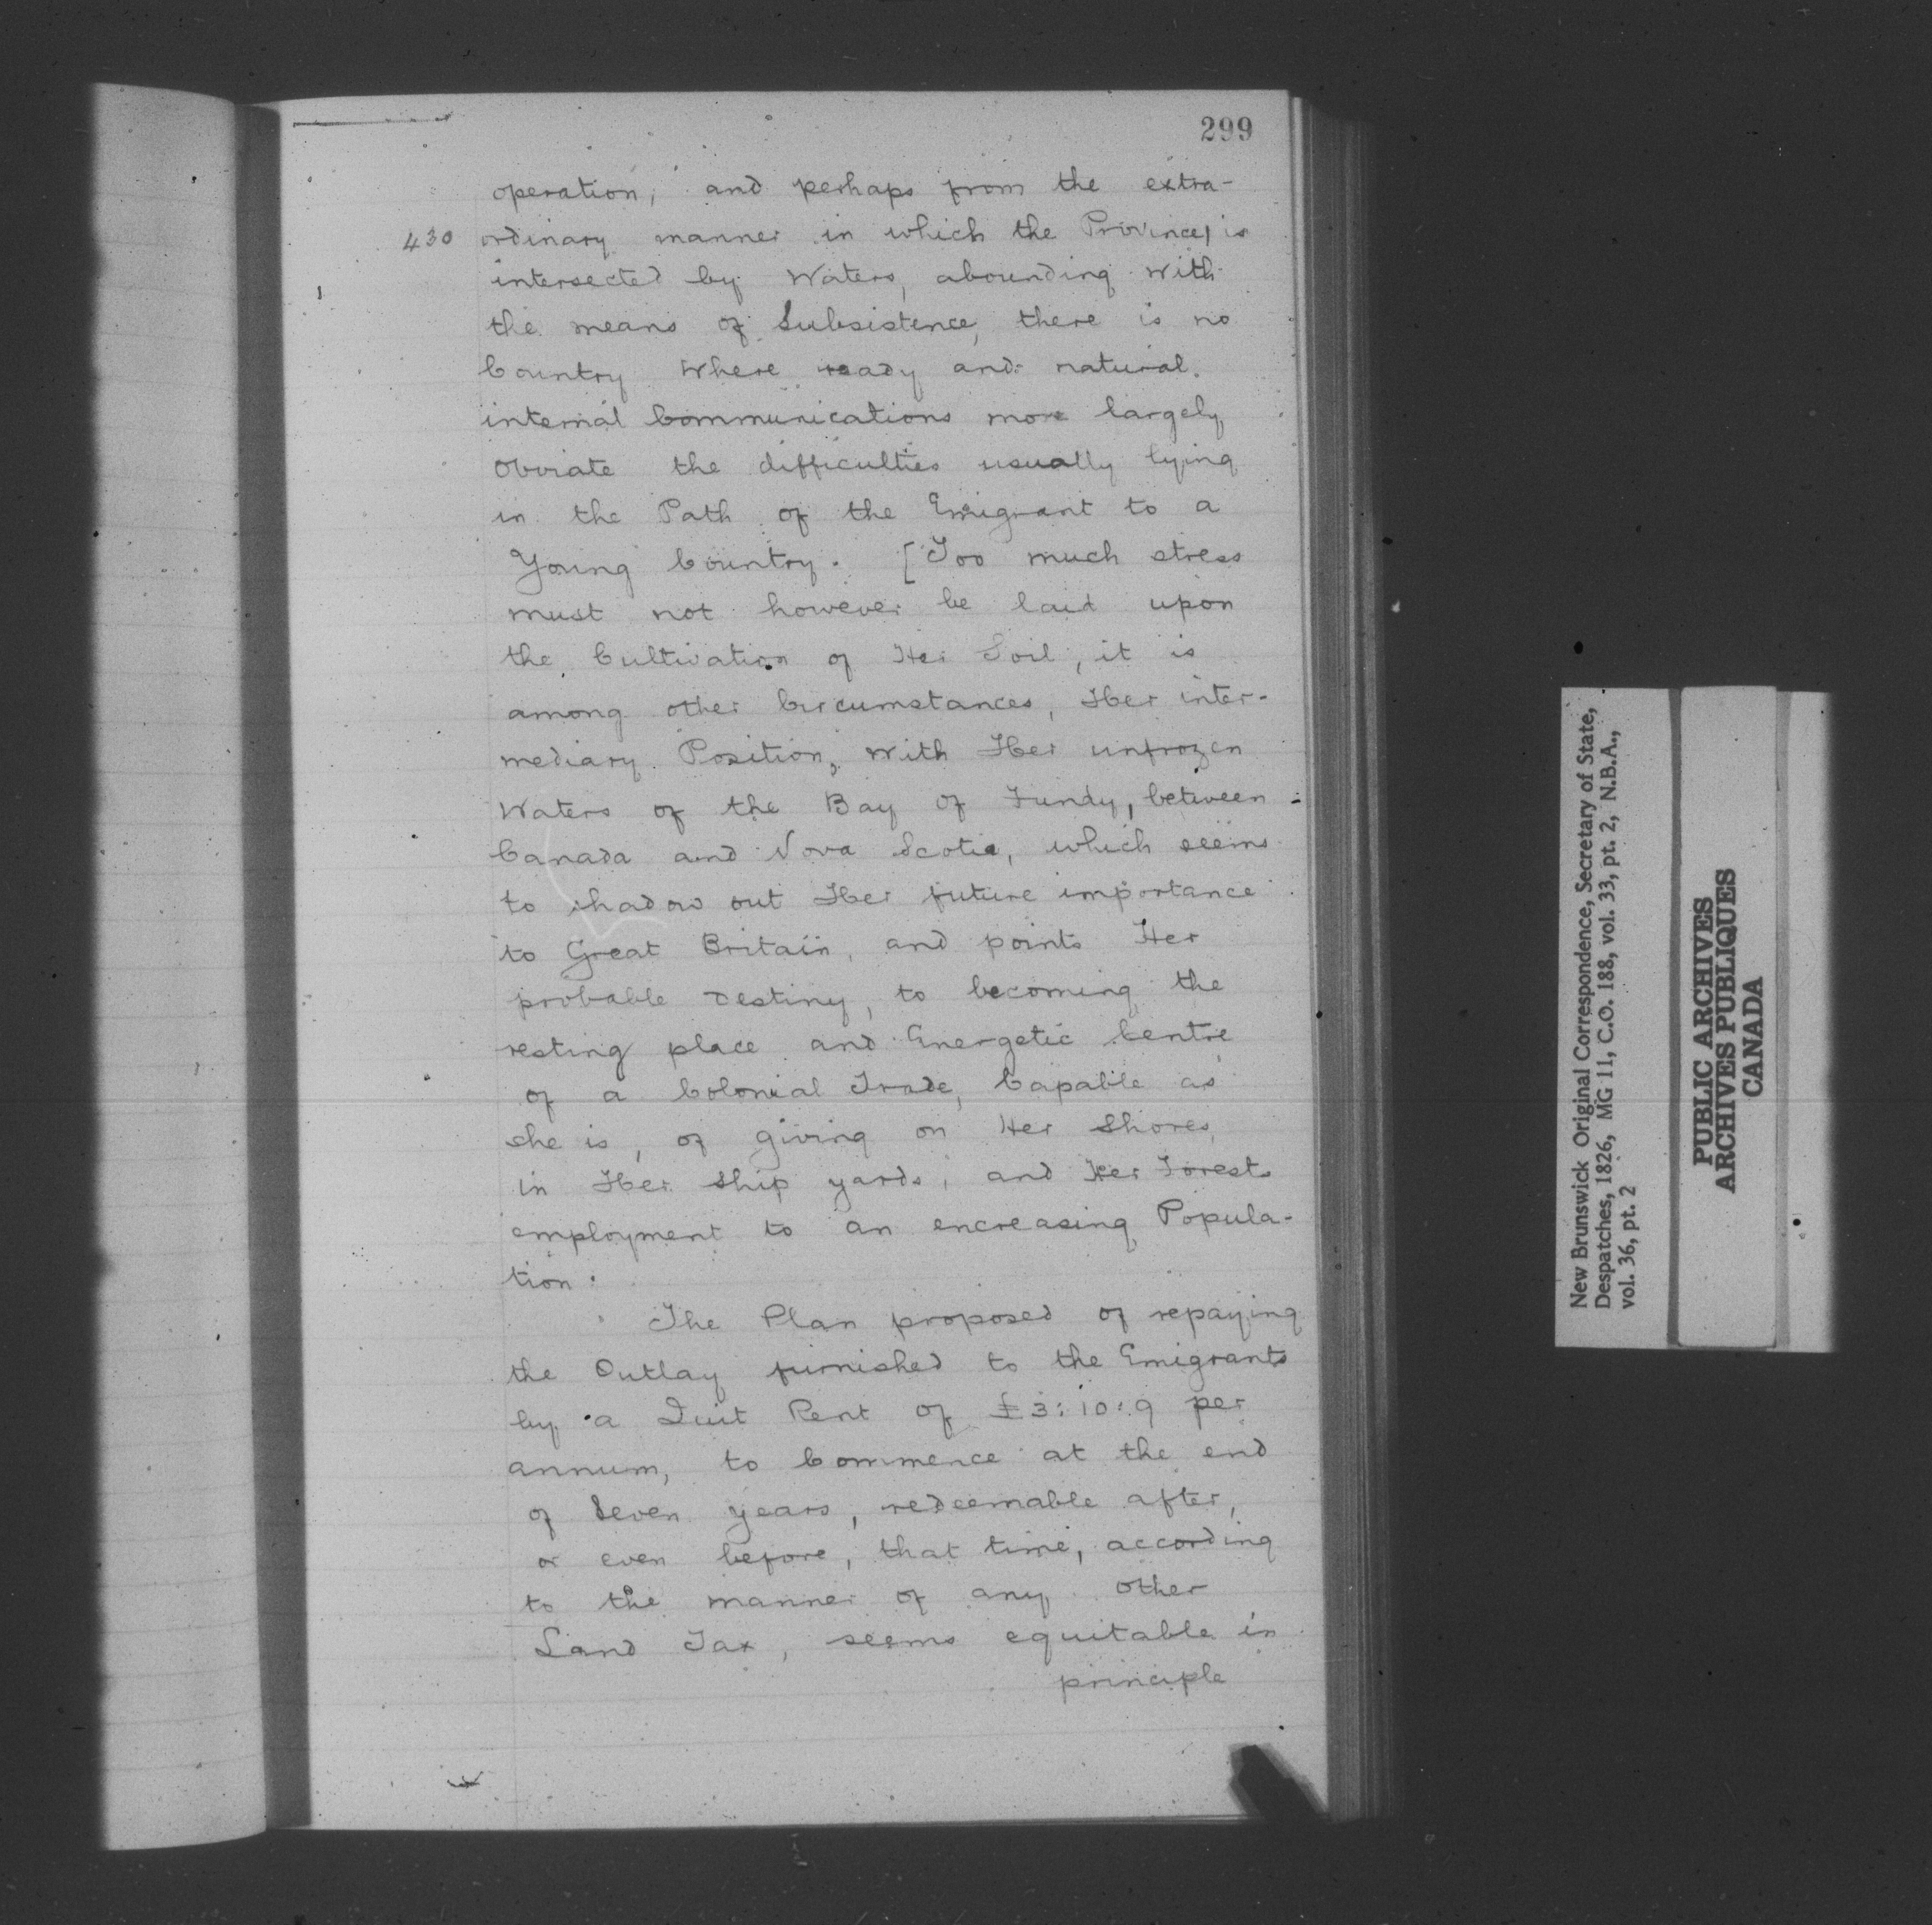 299
operation, and perhaps from the extra-
430 ordinary manner in which the Province is
intersected by Waters, abounding with
the means of Subsistence, there is no
Country Where ready and natural
internal Communications more largely
Obviate the difficulties usually lying
in the Path of the Emigrant to a
Young Country. [Too much stress
must not however be laid upon
the Cultivation of Her Soil, it is
among other Circumstances, Her inter-
mediary Position, With Her unfrozen
Waters of the Bay of Fundy, between
Canada and Nova Scotia, which seems
to shadow out Her future importance
to Great Britain, and points Her
probable destiny, to becoming the
resting place and Energetic Centre
of a Colonial Trade, Capable as
she is, of giving on Her Shores,
in Her Ship yards, and Her Forests
employment to an encreasing Popula-
tion.
The Plan proposed of repaying
the Outlay furnished to the Emigrants
by a Quit Rent of £3:10:9 per
annum, to Commence at the end
of Seven years, redeemable after,
or even before, that time, according
to the manner of any other
Land Tax, seems equitable in
principle
New Brunswick Original Correspondence, Secretary of State,
Despatches, 1826, MG 11, C.O. 188, vol. 33, pt. 2, N.B.A.,
vol. 36, pt. 2
PUBLIC ARCHIVES
ARCHIVES PUBLIQUES
CANADA